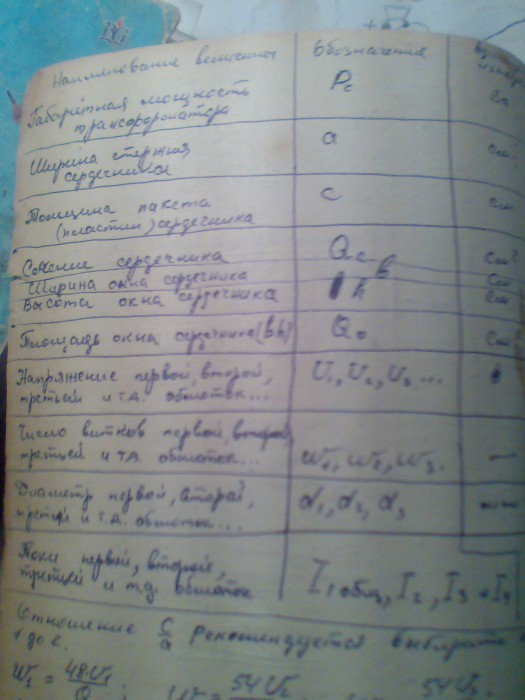 Наименование величины Обозначения
Габаритная мощность Pс
трансформатора
Ширина стержня a см
сердечника
Толщина пакета c см
(пластин) сердечника
Сечение сердечника Qс см²
Ширина окна сердечника b см
Высота окна сердечника h см
Площадь окна сердечника (bh) Qо см²
Напряжение первой, второй, U₁, U₂, U₃ ... в
третьей и т.д. обмоток...
Число витков первой, второй, —
третьей и т.д. обмоток... W₁, W₂, W₃.
Диаметр первой, второй, d₁, d₂, d₃ мм
третьей и т.д. обмоток...
Токи первой, второй,
третьей и т.д. обмоток I₁ общ, I₂, I₃ и I₄
Отношение c/a рекомендуется выбирать
1 до 2.
W₁ = 48·U₁/Q 54 U₂ 54 U₃